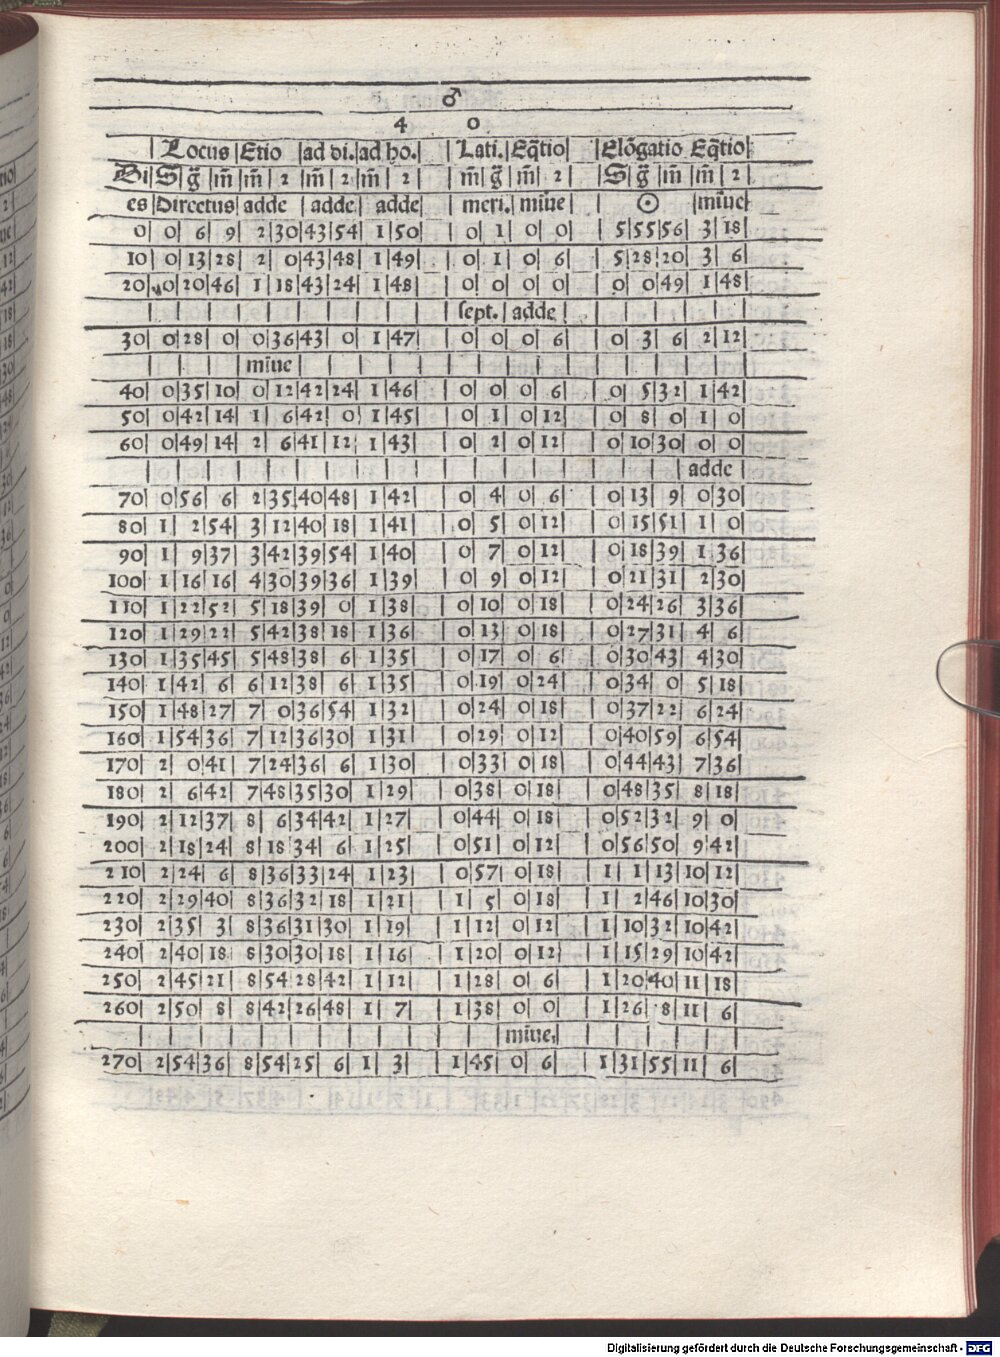 ♂
4 0
Locus |Etio |ad di.|ad ho.| |Lati.|Eq̃tio| |Elõgatio Eq̃tio|
Di|S|g̃|m̃|m̃|2|m̃|2|m̃|2| |m̃|g̃|m̃|2| |S|g̃|m̃|m̃|2|
es|Directus|adde|adde|adde| |meri.|miñe| |☉|miñe|
0| 0| 6| 9| 2|30|43|54| 1|50| |0| 1| 0| 0| |5|55|56| 3|18|
10| 0|13|28| 2| 0|43|48| 1|49| |0| 1| 0| 6| |5|28|20| 3| 6|
20| 0|20|46| 1|18|43|24| 1|48| |0| 0| 0| 0| |0| 0|49| 1|48|
sept.| adde
30| 0|28| 0| 0|36|43| 0| 1|47| |0| 0| 0| 6| |0| 3| 6| 2|12|
miñe
40| 0|35|10| 0|12|42|24| 1|46| |0| 0| 0| 6| |0| 5|32| 1|42|
50| 0|42|14| 1| 6|42| 0| 1|45| |0| 1| 0|12| |0| 8| 0| 1| 0|
60| 0|49|14| 2| 6|41|12| 1|43| |0| 2| 0|12| |0|10|30| 0| 0|
adde
70| 0|56| 6| 2|35|40|48| 1|42| |0| 4| 0| 6| |0|13| 9| 0|30|
80| 1| 2|54| 3|12|40|18| 1|41| |0| 5| 0|12| |0|15|51| 1| 0|
90| 1| 9|37| 3|42|39|54| 1|40| |0| 7| 0|12| |0|18|39| 1|36|
100| 1|16|16| 4|30|39|36| 1|39| |0| 9| 0|12| |0|21|31| 2|30|
110| 1|22|52| 5|18|39| 0| 1|38| |0|10| 0|18| |0|24|26| 3|36|
120| 1|29|22| 5|42|38|18| 1|36| |0|13| 0|18| |0|27|31| 4| 6|
130| 1|35|45| 5|48|38| 6| 1|35| |0|17| 0| 6| |0|30|43| 4|30|
140| 1|42| 6| 6|12|38| 6| 1|35| |0|19| 0|24| |0|34| 0| 5|18|
150| 1|48|27| 7| 0|36|54| 1|32| |0|24| 0|18| |0|37|22| 6|24|
160| 1|54|36| 7|12|36|30| 1|31| |0|29| 0|12| |0|40|59| 6|54|
170| 2| 0|41| 7|24|36| 6| 1|30| |0|33| 0|18| |0|44|43| 7|36|
180| 2| 6|42| 7|48|35|30| 1|29| |0|38| 0|18| |0|48|35| 8|18|
190| 2|12|37| 8| 6|34|42| 1|27| |0|44| 0|18| |0|52|32| 9| 0|
200| 2|18|24| 8|18|34| 6| 1|25| |0|51| 0|12| |0|56|50| 9|42|
210| 2|24| 6| 8|36|33|24| 1|23| |0|57| 0|18| |1| 1|13|10|12|
220| 2|29|40| 8|36|32|18| 1|21| |1| 5| 0|18| |1| 2|46|10|30|
230| 2|35| 3| 8|36|31|30| 1|19| |1|12| 0|12| |1|10|32|10|42|
240| 2|40|18| 8|30|30|18| 1|16| |1|20| 0|12| |1|15|29|10|42|
250| 2|45|21| 8|54|28|42| 1|12| |1|28| 0| 6| |1|20|40|11|18|
260| 2|50| 8| 8|42|26|48| 1| 7| |1|38| 0| 0| |1|26| 8|11| 6|
miñe.
270| 2|54|36| 8|54|25| 6| 1| 3| |1|45| 0| 6| |1|31|55|11| 6|
Digitalisierung gefördert durch die Deutsche Forschungsgemeinschaft - DFG